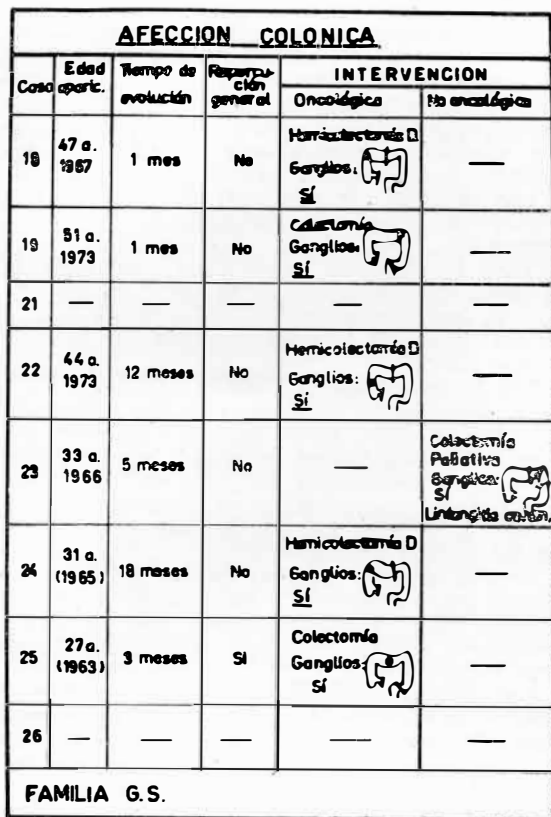 AFECCION COLONICA
Caso
Edad aparic.
Tiempo de evolución
Repercusión general
INTERVENCION
Oncológica
No oncológica
18
47 a.
1967
1 mes
No
Hemicolectomía D
Ganglios:
Sí
—
19
51 a.
1973
1 mes
No
Colectomía
Ganglios:
Sí
—
21 — — — — —
22
44 a.
1973
12 meses
No
Hemicolectomía D
Ganglios:
Sí
—
23
33 a.
1966
5 meses
No
—
Colectomía
Paliativa
Ganglios:
Sí
24
31 a.
(1965)
18 meses
No
Hemicolectomía D
Ganglios:
Sí
—
25
27 a.
(1963)
3 meses
Sí
Colectomía
Ganglios:
Sí
—
26 — — — — —
FAMILIA G.S.